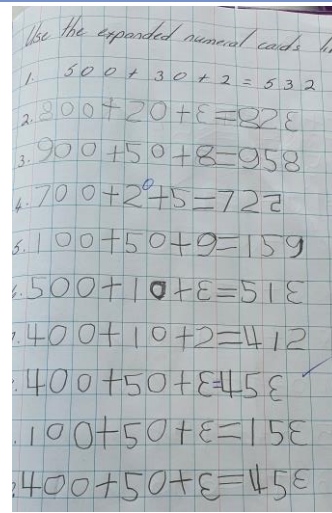 Use the expanded numeral cards
1. 500 + 30 + 2 = 532
2. 800+20+3=823
3. 900+50+8=958
4. 700+20+5=722
5. 100+50+9=159
6. 500+10+3=513
7. 400+10+2=412
400+50+3=453
100+50+3=153
400+50+3=453